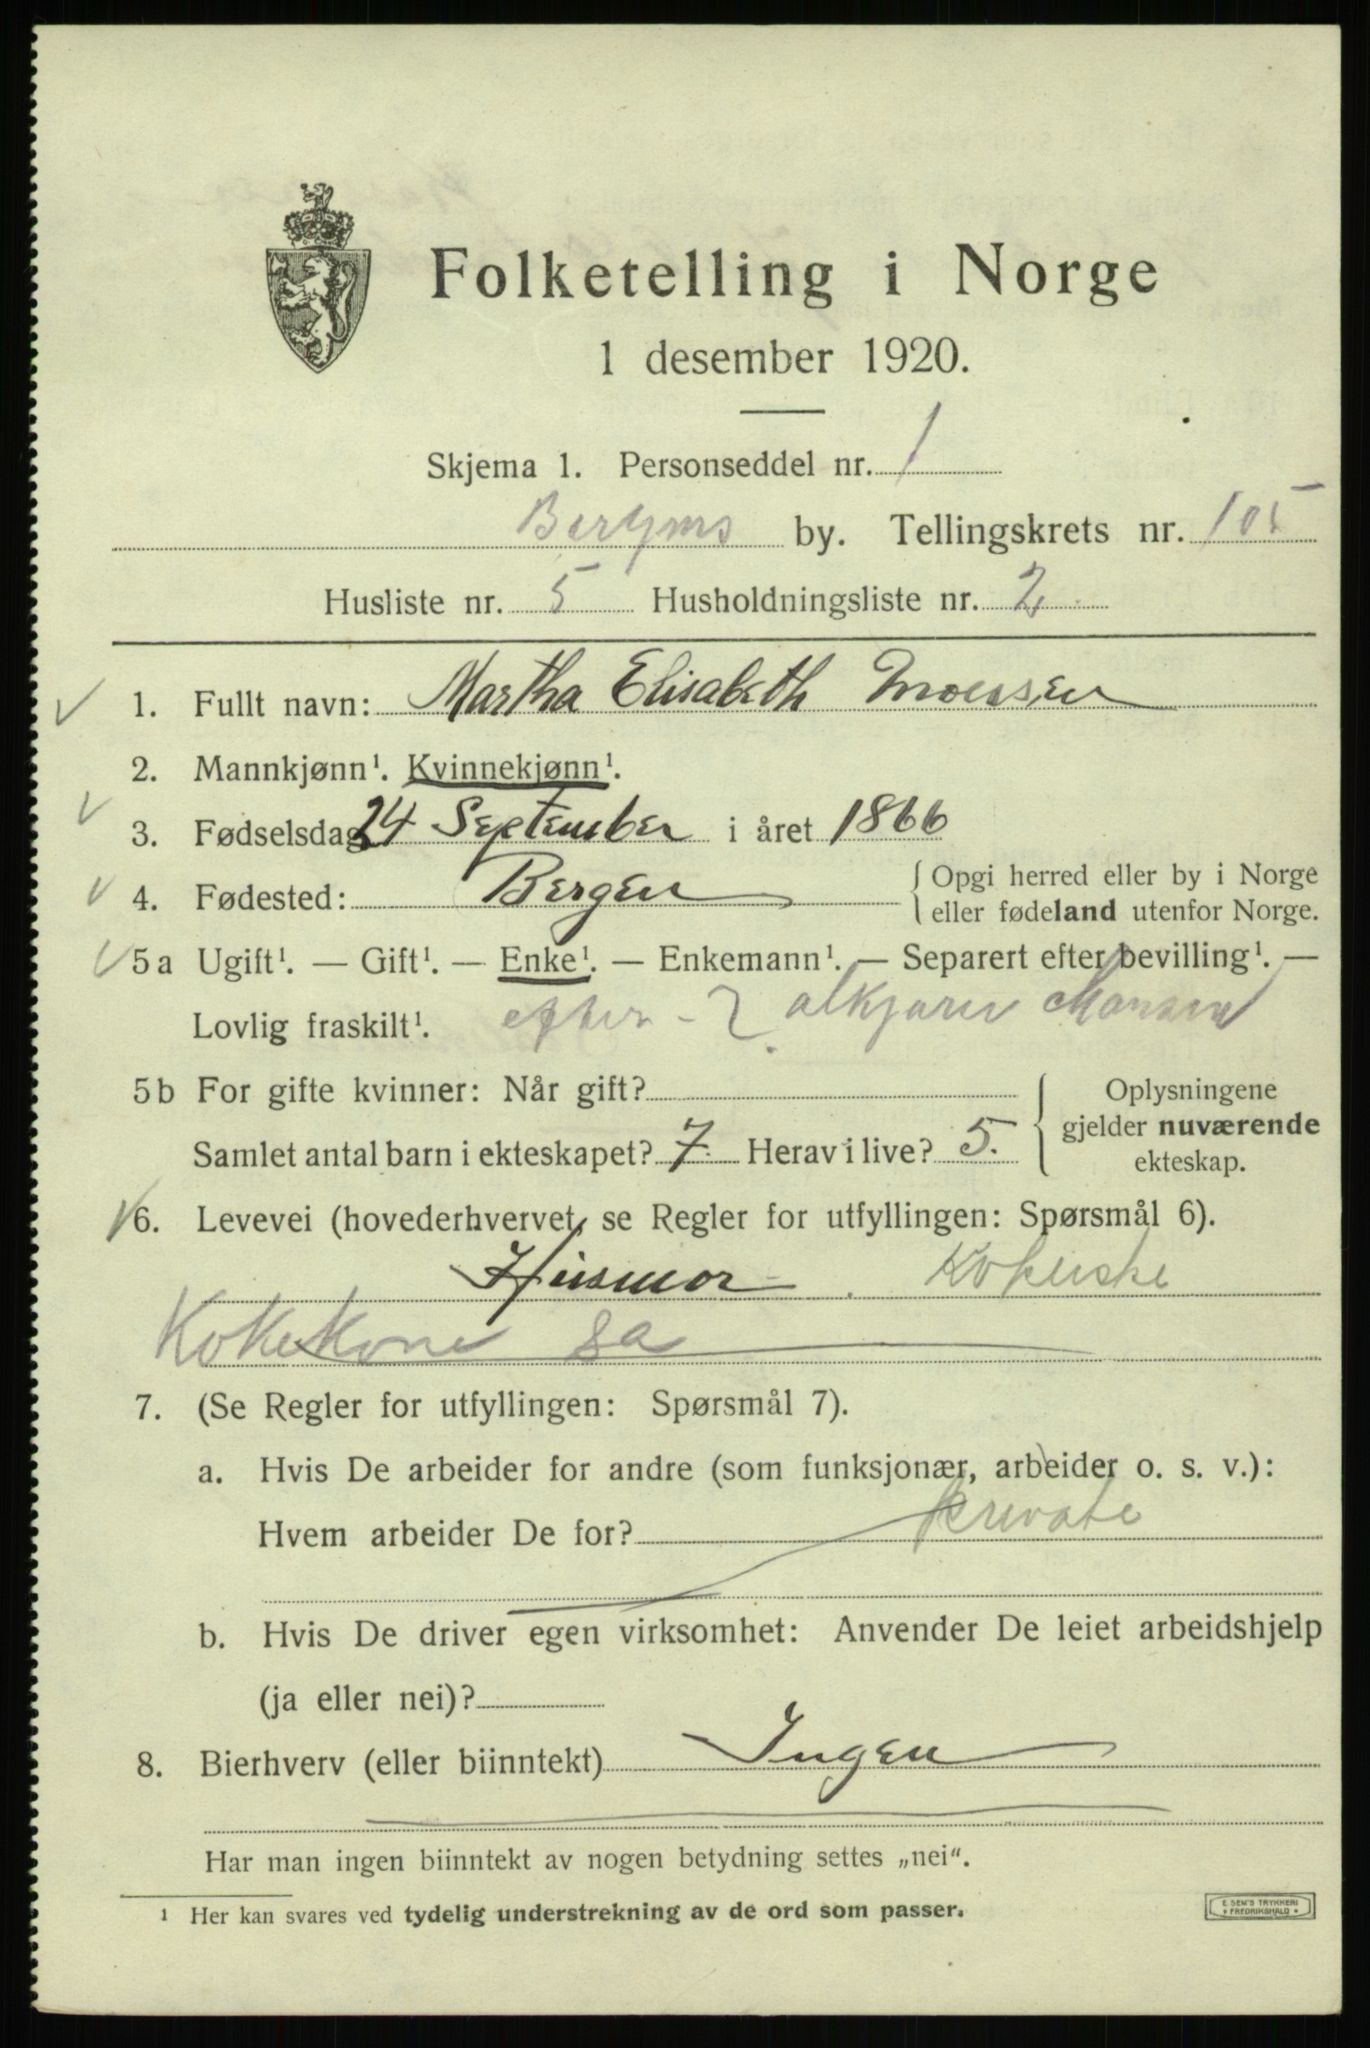 Folketelling i Norge
1 desember 1920.
Skjema 1. Personseddel nr. 1
Bergens by. Tellingskrets nr. 105
Husliste nr. 5 Husholdningsliste nr. 2
1. Fullt navn: Martha Elisabeth
2. Mannkjønn¹. Kvinnekjønn¹.
3. Fødselsdag 24 September i året 1866
4. Fødested: Bergen { Opgi herred eller by i Norge
eller fødeland utenfor Norge.
5a Ugift¹. — Gift¹. — Enke¹. — Enkemann¹. — Separert efter bevilling¹. —
Lovlig fraskilt¹. efter
5b For gifte kvinner: Når gift? { Oplysningene
gjelder nuværende
ekteskap.
Samlet antal barn i ekteskapet? 7. Herav i live? 5.
6. Levevei (hovederhvervet, se Regler for utfyllingen: Spørsmål 6).
Husmor Kokerske
Kokekone
7. (Se Regler for utfyllingen: Spørsmål 7).
a. Hvis De arbeider for andre (som funksjonær, arbeider o. s. v.):
Hvem arbeider De for? private
b. Hvis De driver egen virksomhet: Anvender De leiet arbeidshjelp
(ja eller nei)?
8. Bierhverv (eller biinntekt) Ingen
Har man ingen biinntekt av nogen betydning settes „nei“.
¹ Her kan svares ved tydelig understrekning av de ord som passer.
E. SEM'S TRYKKERI
FREDRIKSHALD